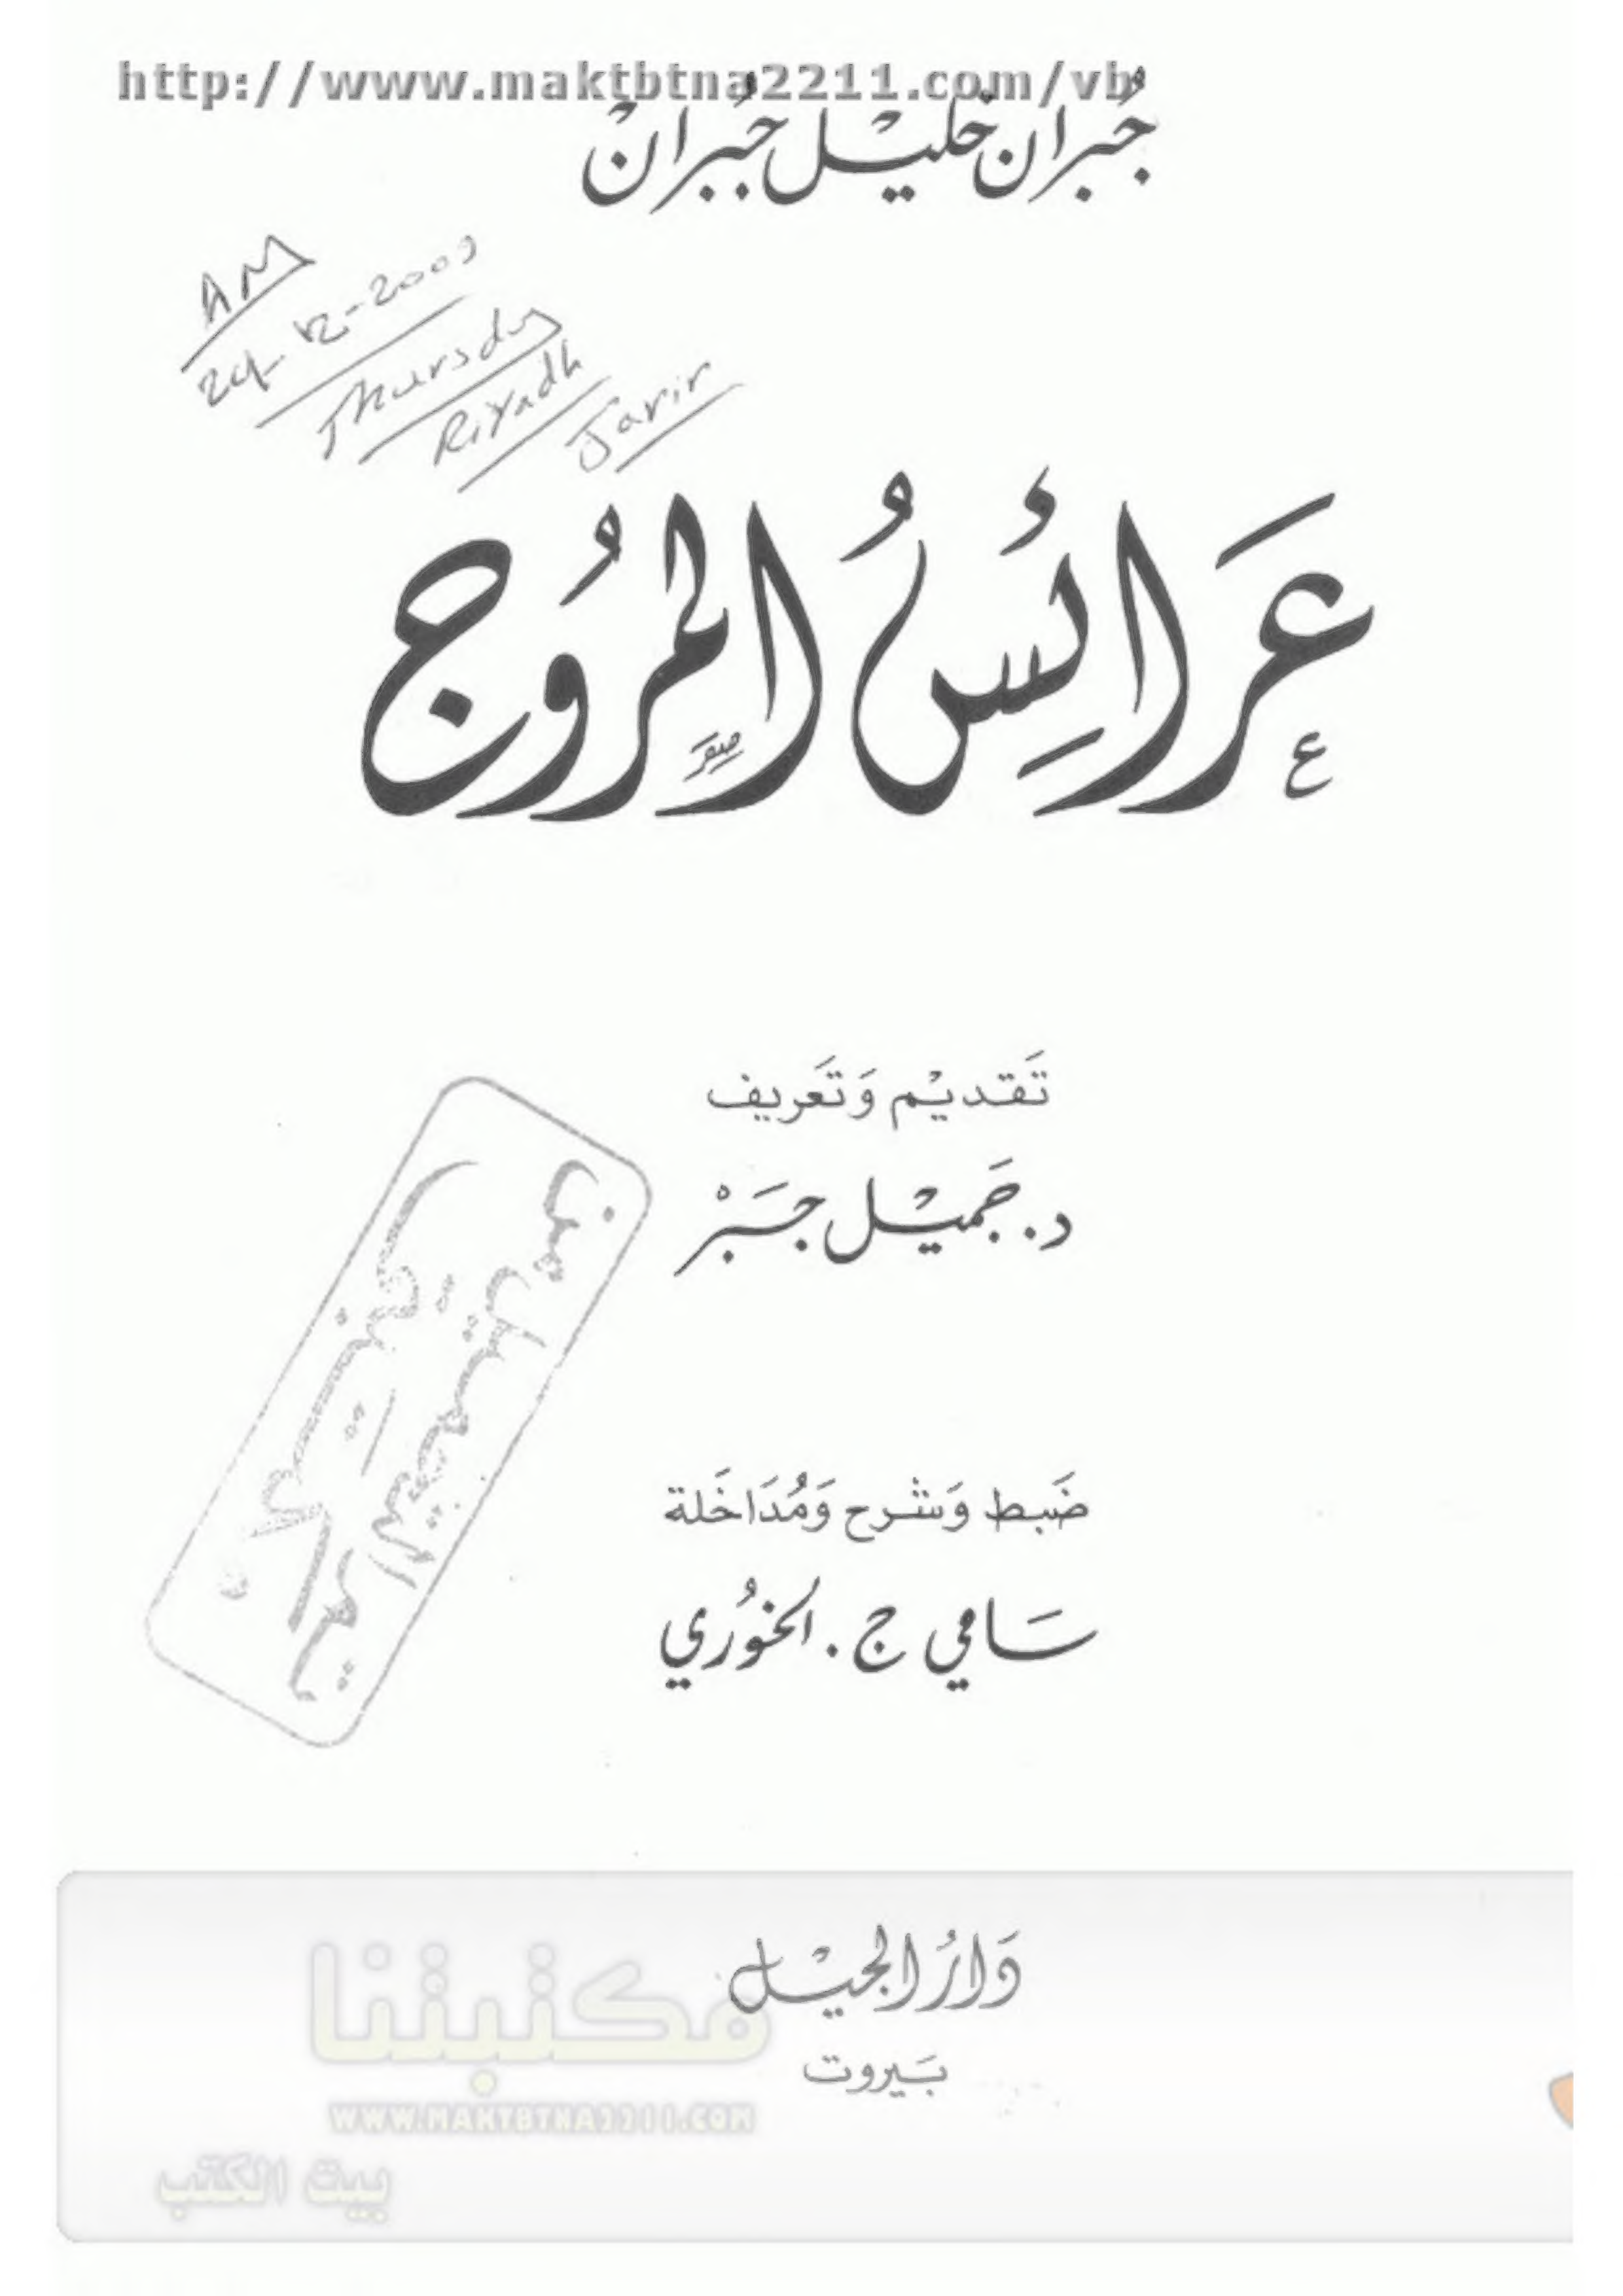 http://www.maktbtna2211.com/vb
جُبران خليْل جُبرانْ
AM
24-12-2009
Thursday
Riyadh
Jarir
عَرَائِسُ المرُوج
تَقديْم وَتَعريف
د. جَميْل جَبَرْ
ضَبط وَشرح وَمُدَاخَلة
سَامي ج. الخوُري
دَارُ الجيْل
بَيروت
مكتبتنا
WWW.MAKTBTNA2211.COM
بيت الكتب